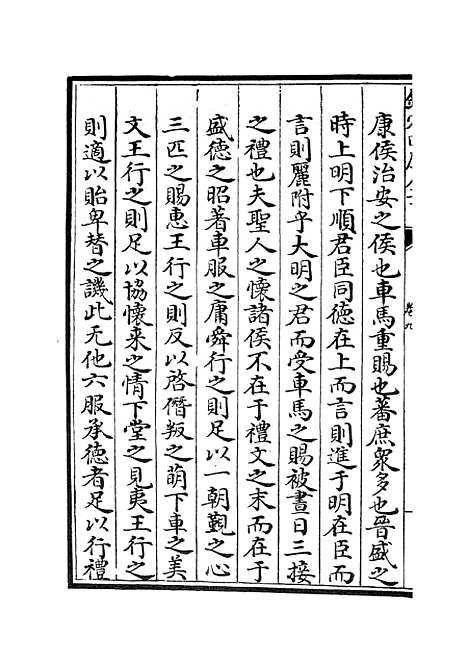 康侯治安之侯也車馬重賜也蕃庶衆多也晉盛之
時上明下順君臣同德在上而言則進于明在臣而
言則麗附乎大明之君而受車馬之賜被晝日三接
之禮也夫聖人之懷諸侯不在于禮文之末而在于
盛德之昭著車服之庸舜行之則足以一朝覲之心
三匹之賜惠王行之則反以啓僭叛之萌下車之美
文王行之則足以協懷來之情下堂之見夷王行之
則適以貽卑替之譏此无他六服承德者足以行禮
卷九